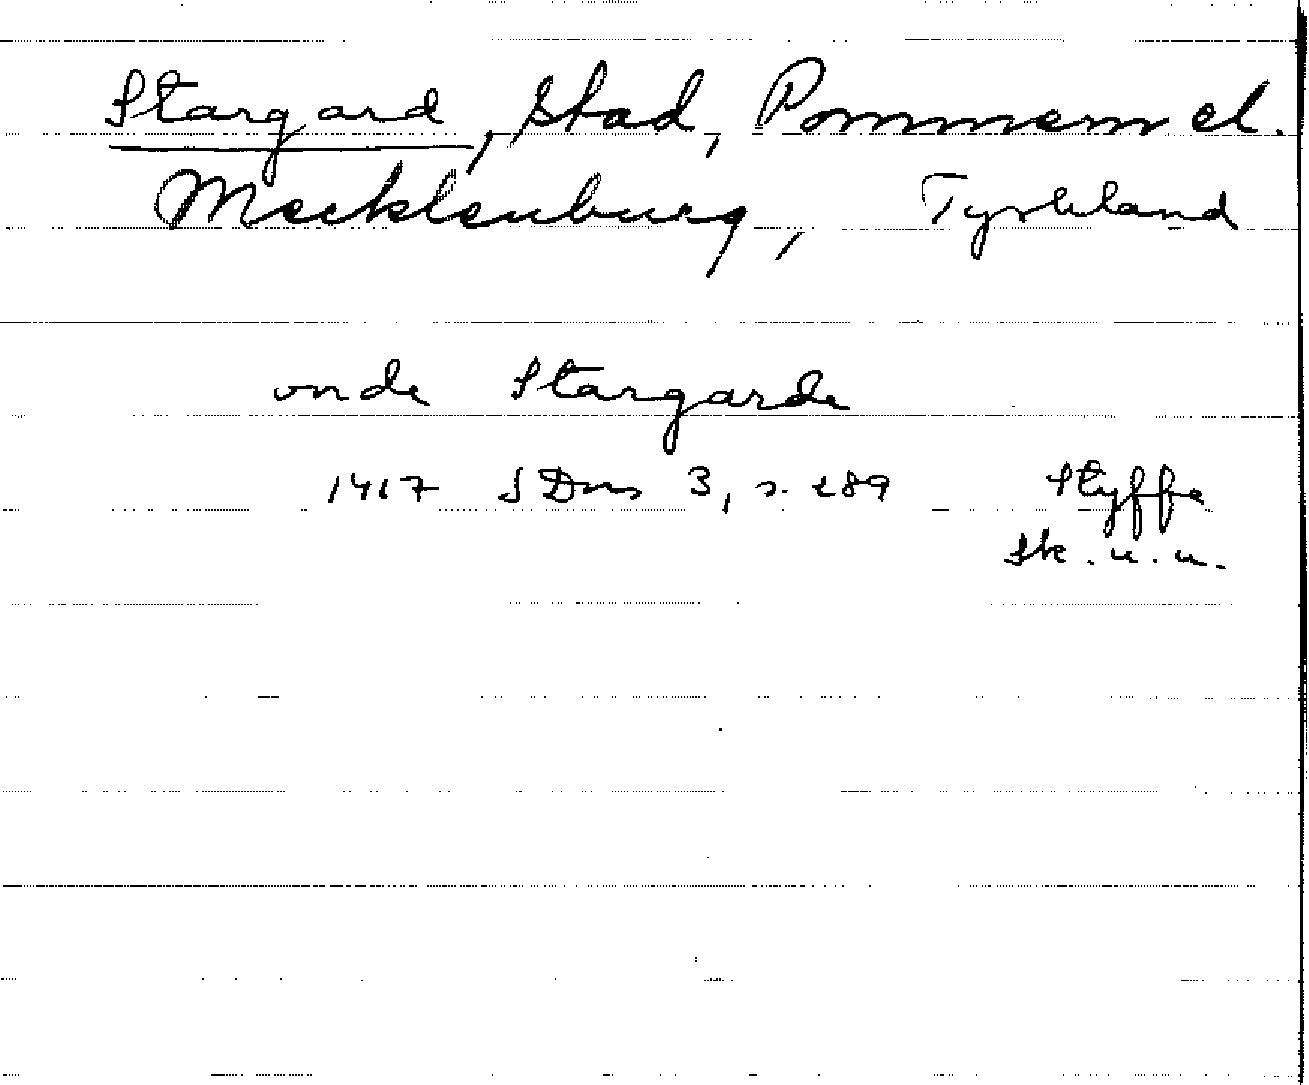 Stargard, stad, Pommern el.
Mecklenburg, Tyskland
vnde Stargarde
1417 SDns 3, s. 289 Styffe
Sk. u. u.